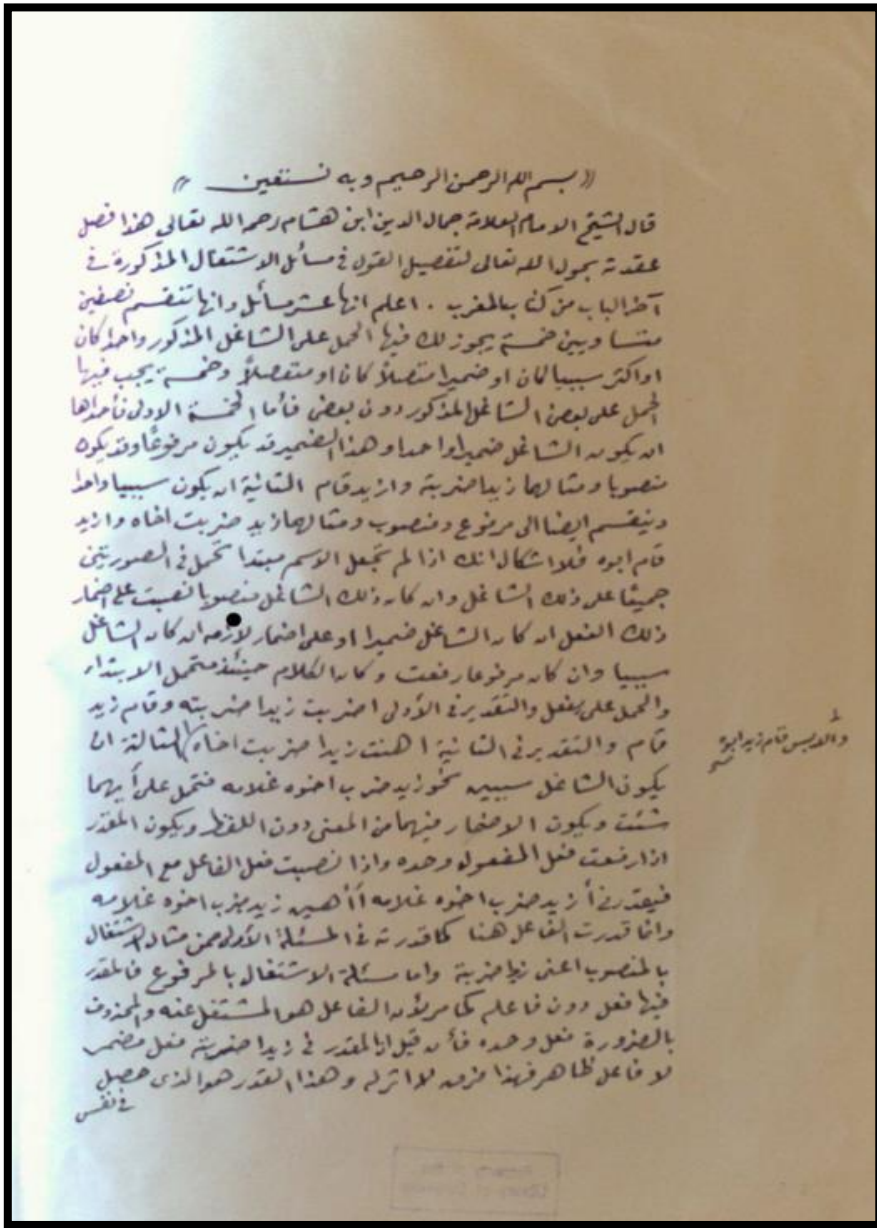 ((بسم الله الرحمن الرحيم وبه نستعين))
قال الشيخ الامام العلامة جمال الدين ابن هشام رحمه الله تعالى هذا فصل
عقدته بحول الله تعالى لتفصيل القول في مسائل الاشتغال المذكورة في
آخر الباب من كتاب المغرب . اعلم انها عشر مسائل وانها تنقسم نصفين
متساويين خمسة يجوز لك فيها الحمل على الشاغل المذكور واحدا كان
او اكثر سببيا كان او ضميرا متصلاً كان او منفصلاً وخمسة يجب فيها
الحمل على بعض الشاغل المذكور دون بعض فأما الخمسة الاولى فأحداها
ان يكون الشاغل ضميرا واحدا وهذا الضمير قد يكون مرفوعًا وقد يكون
منصوبا ومثالهما زيدا ضربته وازيد قام الثانية ان يكون سببيا واحدا
وينقسم ايضا الى مرفوع ومنصوب ومثالهما زيد ضربت اخاه وازيد
قام ابوه فلا اشكال انك اذا لم تجعل الاسم مبتدا تحمل في الصورتين
جميعًا على ذلك الشاغل وان كان ذلك الشاغل منصوبا نصبت على اضمار
ذلك الفعل ان كان الشاغل ضميرا او على اضمار لازمه ان كان الشاغل
سببيا وان كان مرفوعا رفعت وكان الكلام حينئذ محتمل الابتداء
والحمل على الفعل والتقدير في الأولى اضربت زيدا ضربته وقام زيد
قام والتقدير في الثانية اهنت زيدا ضربت اخاه الثالثة ان
زيد ابوه
يكون الشاغل سببين نحو زيد ضرب اخوه غلامه فتحمل على أيهما
شئت ويكون الاضمار فيهما من المعنى دون اللفظ ويكون المقدر
اذا رفعت فعل المفعول وحده واذا نصبت فعل الفاعل مع المفعول
فيقدر في أزيد ضرب اخوه غلامه أأهين زيد ضرب اخوه غلامه
وانما قدرت الفاعل هنا كما قدرته في المسئلة الأولى من مثال الاشتغال
بالمنصوب اعنى زيدا ضربته واما مسئلة الاشتغال بالمرفوع فالمقدر
فيها فعل دون فاعله كما مر لأن الفاعل هو المشتغل عنه والمحذوف
بالضرورة فعل وحده فأن قيل المقدر في زيدا ضربته فعل مضمر
لا فاعل ظاهر فهذا فرق لا اثر له وهذا القدر هو الذى حصل
في نفس